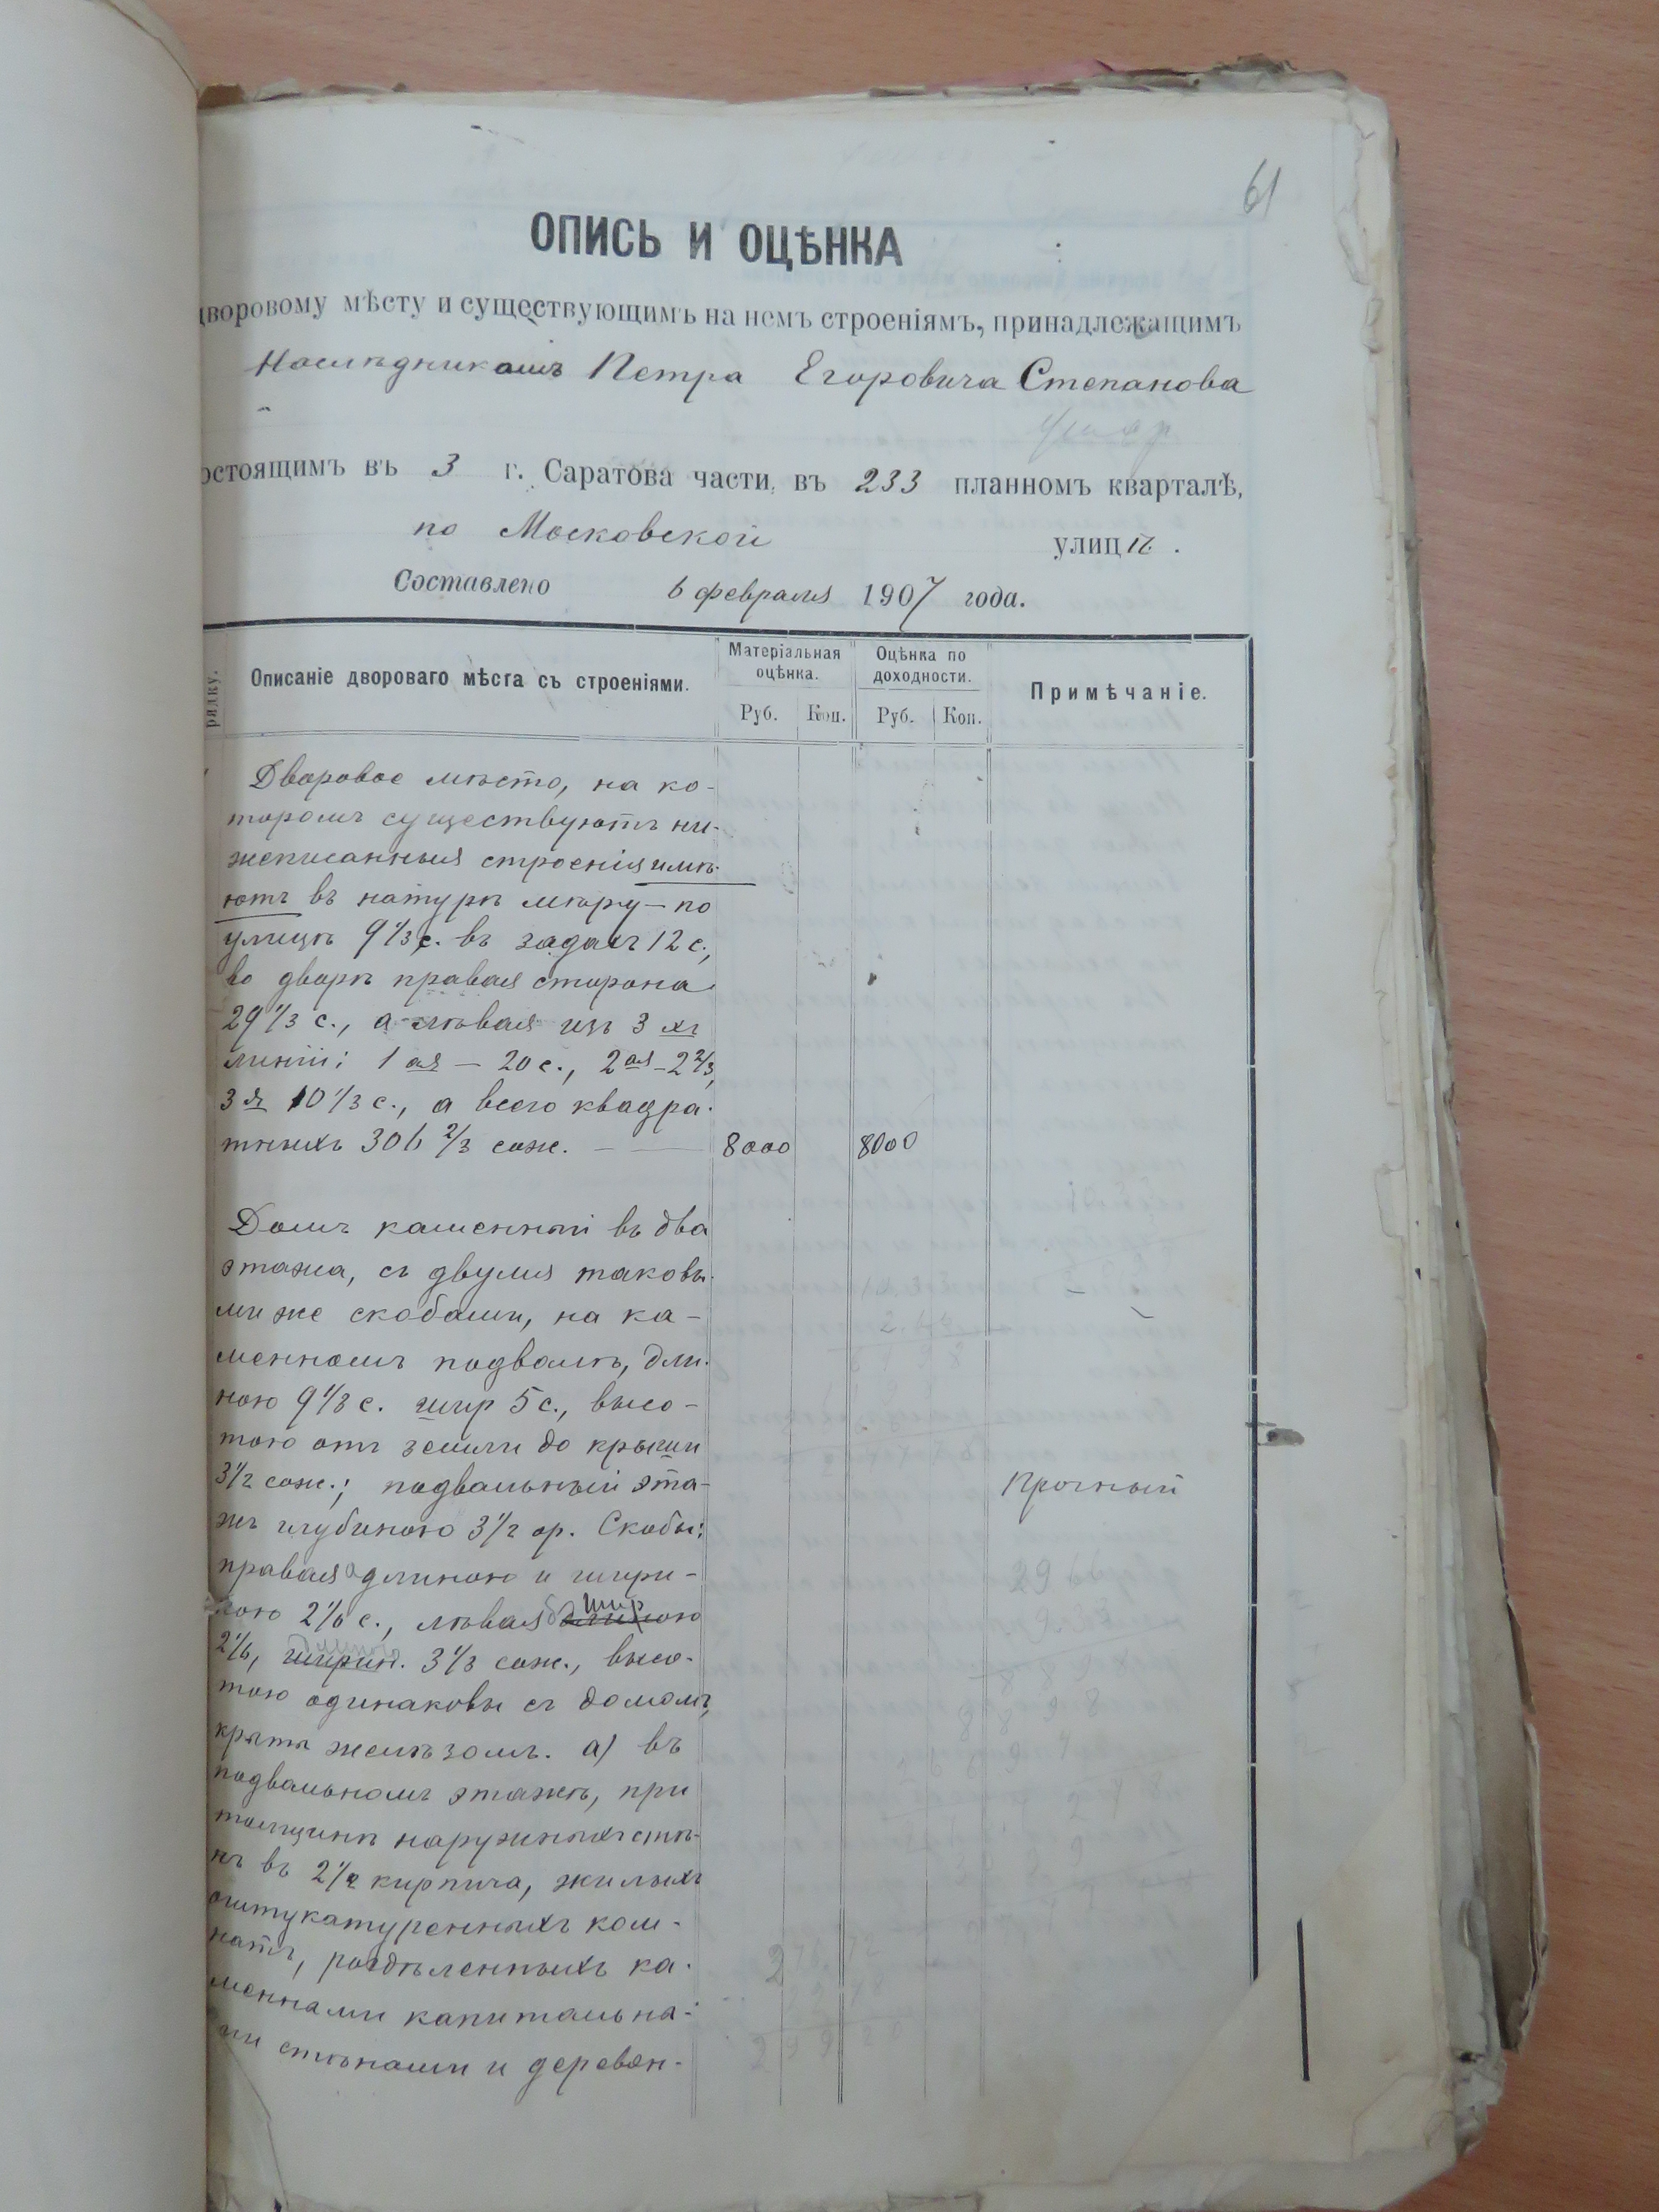 61
ОПИСЬ И ОЦѢНКА
дворовому мѣсту и существующимъ на немъ строеніямъ, принадлежащимъ
Наслѣдникамъ Петра Егоровича Степанова
остоящимъ въ 3 г. Саратова части, въ 233 планномъ кварталѣ,
по Московской улицѣ.
Составлено 6 февраля 1907 года.
рядку.
Описаніе двороваго мѣста съ строеніями.
Матеріальная оцѣнка.
Оцѣнка по доходности.
Примѣчаніе.
Руб. Коп. Руб. Коп.
Дворовое мѣсто, на ко-
торомъ существуютъ ни-
жеписанныя строенія имѣ-
ютъ въ натурѣ мѣру — по
улицѣ 9 1/3 с. въ задахъ 12 с.,
во дворѣ правая сторона
29 1/3 с., а лѣвая изъ 3 хъ
линій: 1 ая — 20 с., 2 ая - 2 2/3,
3 я 10 1/3 с., а всего квадра-
тныхъ 306 2/3 саж. — 8000 8000
Домъ каменный въ два
этажа, съ двумя таковы-
ми же скобами, на ка-
менномъ подвалѣ, дли-
ною 9 1/3 с. шир 5 с., высо-
тою отъ земли до крыши
3 1/2 саж.; подвальный эта-
Прочный
жъ глубиною 3 1/2 ар. Скобы:
правая длиною и шири-
ною 2 1/6 с., лѣвая шир
2 1/6, длиною 3 1/3 саж., высо-
тою одинаковы съ домомъ,
крыты желѣзомъ. а) въ
подвальномъ этажѣ, при
толщинѣ наружныхъ стѣ-
нъ въ 2 1/2 кирпича, жилыхъ
оштукатуренныхъ ком-
натъ, раздѣленныхъ ка-
менными капитальны-
ми стѣнами и деревян-